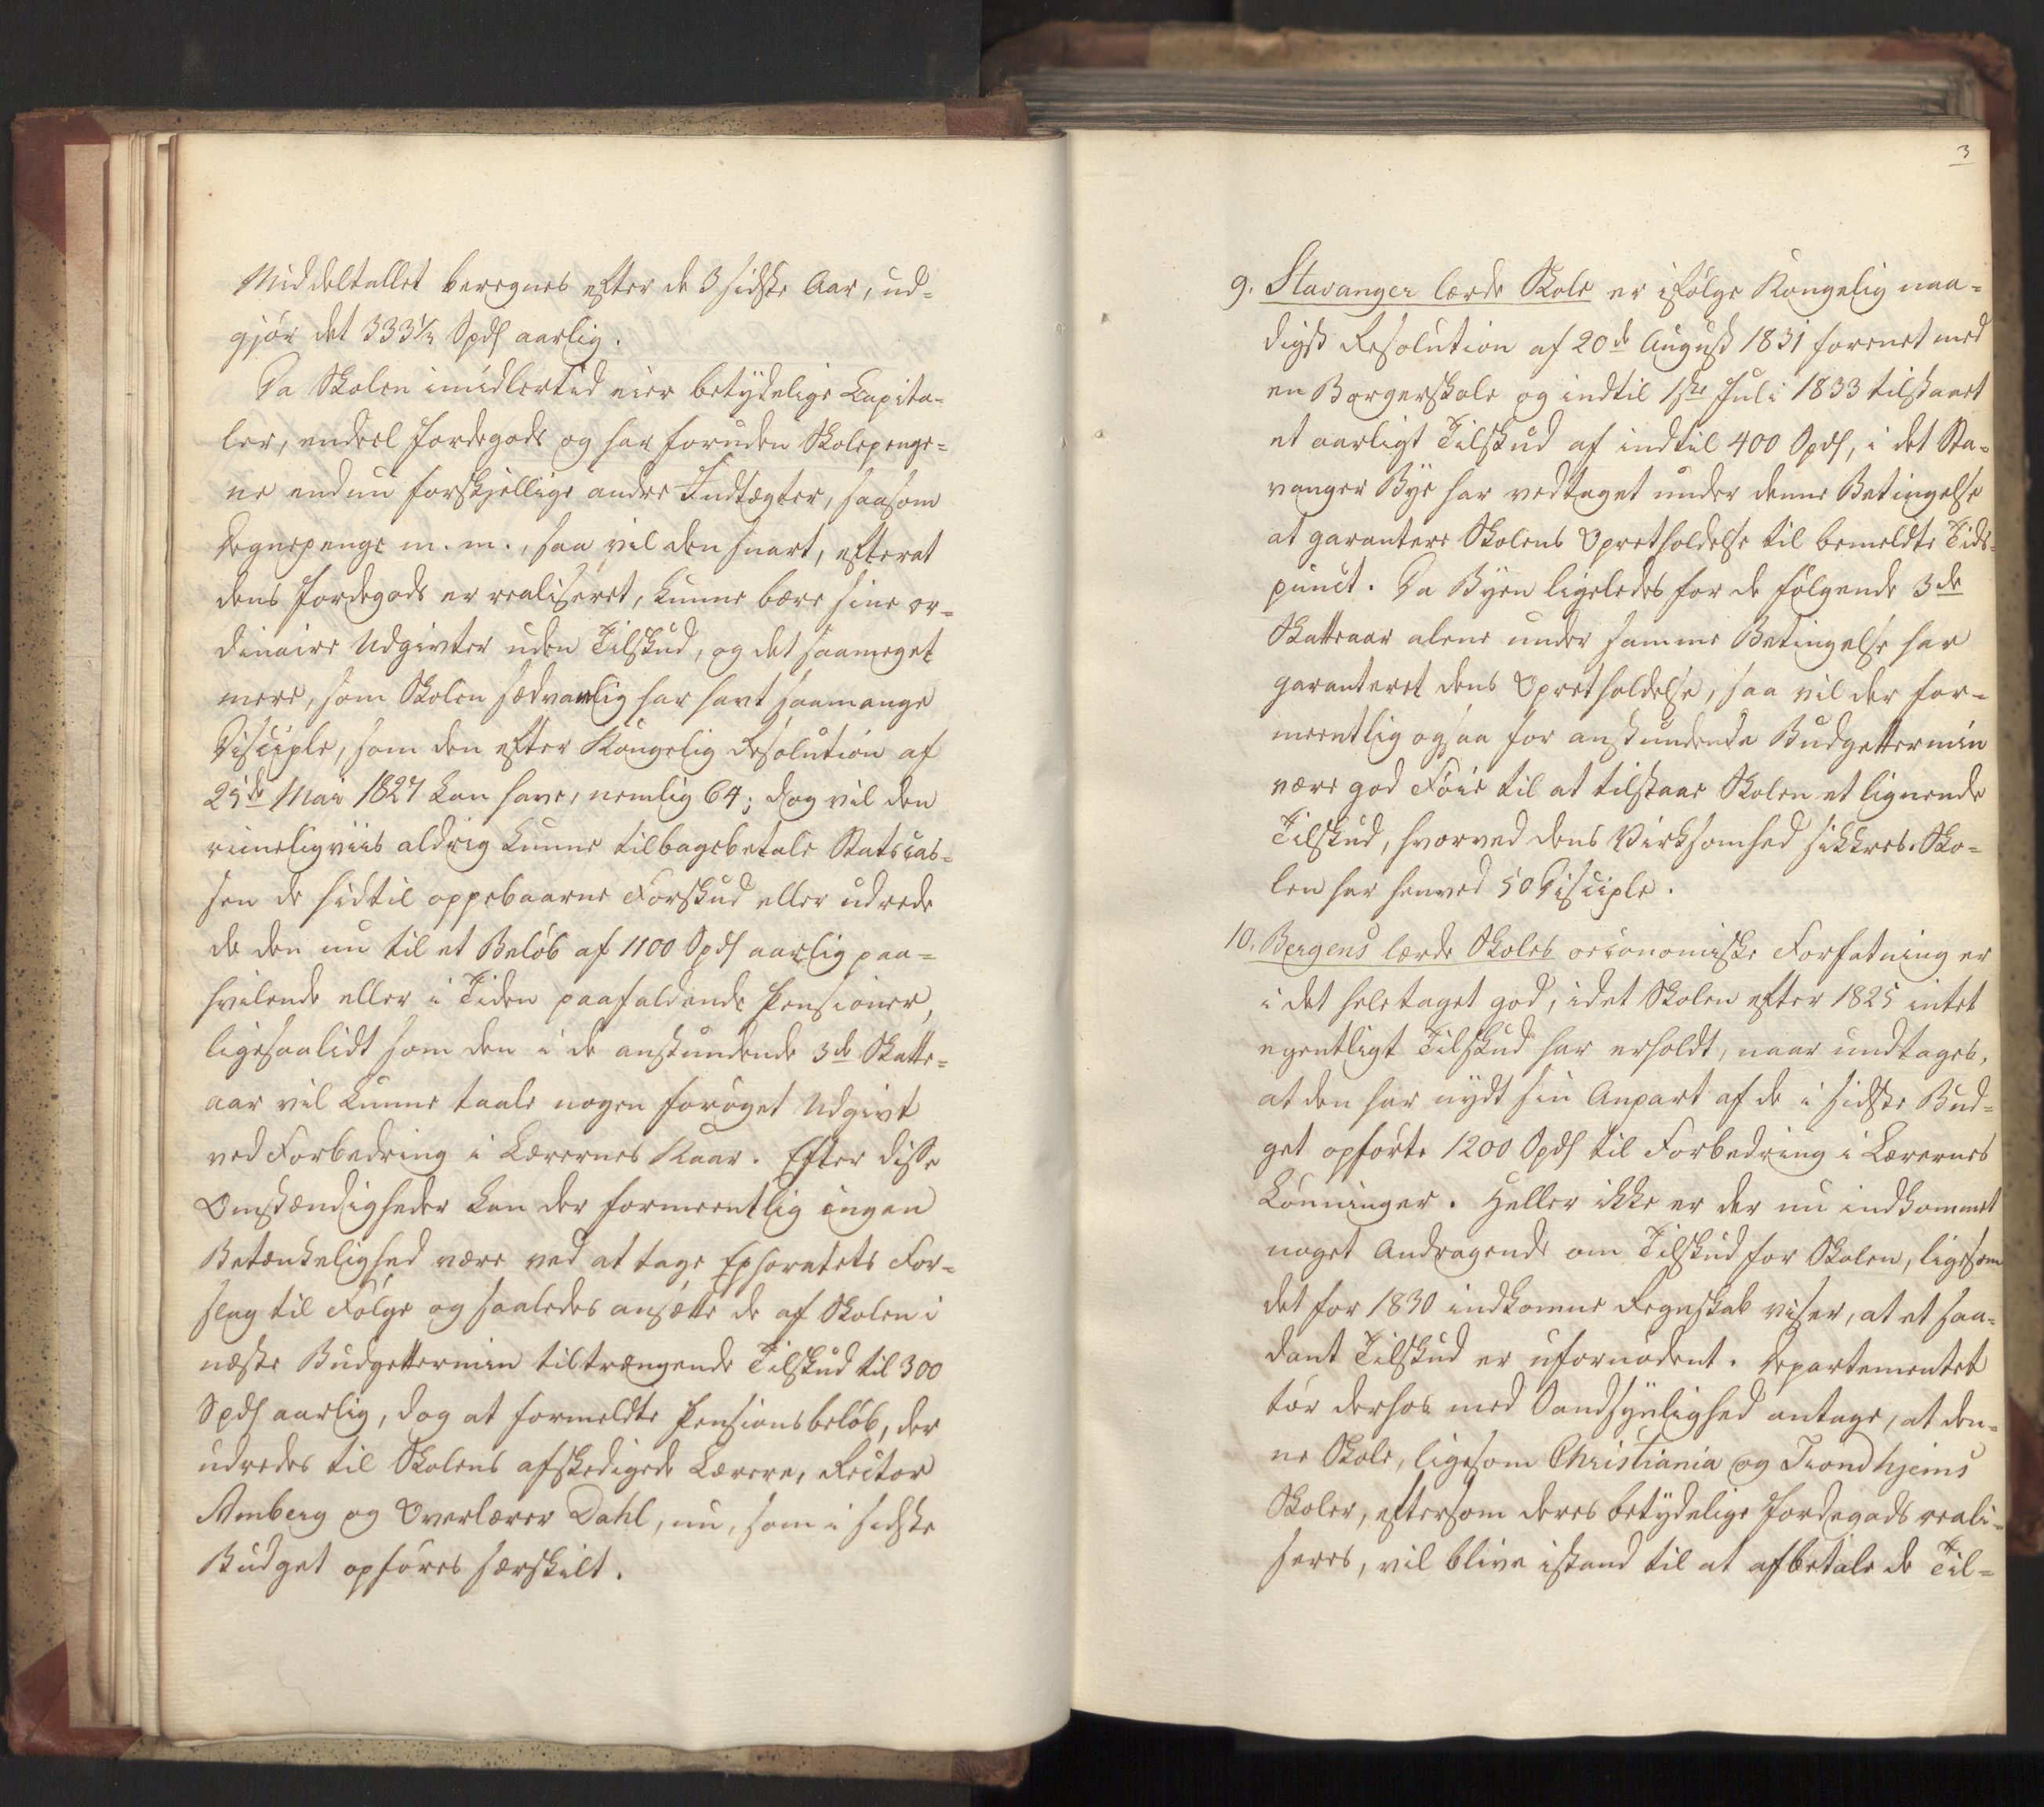 Middeltallet beregnes efter de 3 sidste Aar, ud-
gjør det 333⅓ Spd aarlig.
Da Skolen imidlertid eier betydelige Capita-
ler, endeel Jordegods og har foruden Skolepenge-
ne endnu forskjellige andre Indtægter, saasom
Degnepenge m. m., saa vil den snart, efterat
dens Jordegods er realiseret, kunne bære sine or-
dinaire Udgivter uden Tilskud, og det saameget
mere, som Skolen sædvanlig har havt saamange
Disciple, som den efter Kongelig Resolution af
25de Mai 1827 kan have, nemlig 64; dog vil den
rimeligviis aldrig kunne tilbagebetale Statscas-
sen de hidtil oppebaarne Forskud eller udrede
de den nu til et Beløb af 1100 Spd aarlig paa-
hvilende eller i Tiden paafaldende Pensioner,
ligesaalidt som den i de anstundende 3de Skatte-
aar vil kunne taale nogen forøget Udgivt
ved Forbedring i Lærernes Kaar. Efter disse
Omstændigheder kan der formeentlig ingen
Betænkelighed være ved at tage Ephoratets For-
slag til Følge og saaledes ansætte de af Skolen i
næste Budgettermin tiltrængende Tilskud til 300
Spd aarlig, dog at formeldte Pensionsbeløb, der
udredes til Skolens afskedigede Lærere, Rector
Amberg og Overlærer Dahl, nu, som i sidste
Budget opføres særskilt.
3
9. Stavanger lærde Skole er ifølge Kongelig naa-
digst Resolution af 20de August 1831 forenet med
en Borgerskole og indtil 1ste Juli 1833 tilstaaet
et aarligt Tilskud af indtil 400 Spd, i det Sta-
vanger Bye har vedtaget under denne Betingelse
at garantere Skolens Opretholdelse til bemeldte Tids-
punct. Da Byen ligeledes for de følgende 3de
Skatteaar alene under samme Betingelse har
garanteret dens Opretholdelse, saa vil der for-
meentlig ogsaa for anstundende Budgettermin
være god Føie til at tilstaae Skolen et lignende
Tilskud, hvorved dens Virksomhed sikkres. Sko-
len har henved 50 Disciple.
10. Bergens lærde Skoles oeconomiske Forfatning er
i det hele taget god, idet Skolen efter 1825 intet
egentligt Tilskud har erholdt, naar undtages,
at den har nydt sin Anpart af de i sidste Bud-
get opførte 1200 Spd til Forbedring i Lærernes
Lønninger. Heller ikke er der nu indkommet
noget Andragende om Tilskud for Skolen, ligesom
det for 1830 indkomne Regnskab viser, at et saa-
dant Tilskud er ufornødent. Departementet
tør derhos med Sandsynlighed antage, at den-
ne Skole, ligesom Christiania og Trondhjems
Skoler, eftersom deres betydelige Jordegods reali-
seres, vil blive istand til at afbetale de Til-